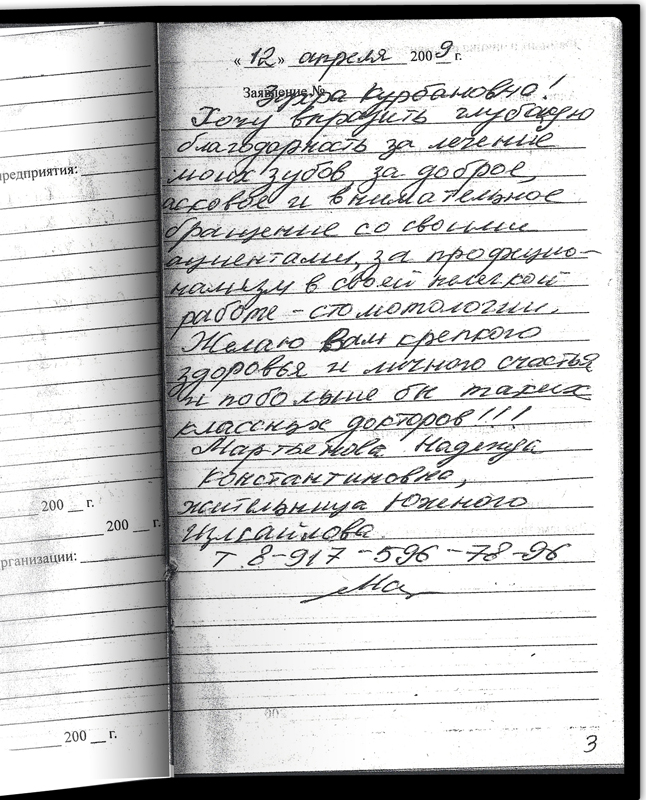 « 12 » апреля 2009 г.
Заявление №
Зухра Курбановна!
Хочу выразить глубокую
благодарность за лечение
моих зубов, за доброе,
асковое и внимательное
бращение со своими
ациентами, за профицио-
нализм в своей нелегкой
работе - стомотологии.
Желаю Вам крепкого
здоровья и личного счастья
и побольше бы таких
классных докторов!!!
Мартьенова Надежда
Константиновна,
жительница Южного
Измайлова.
т. 8-917-596-78-96
предприятия:
200 __ г.
200 __ г.
рганизации:
200 __ г.
3